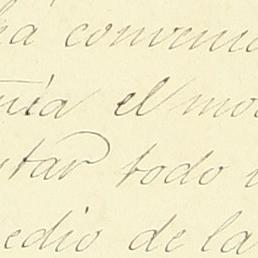 ha convenie
nía el mo
tar todo
edio de la